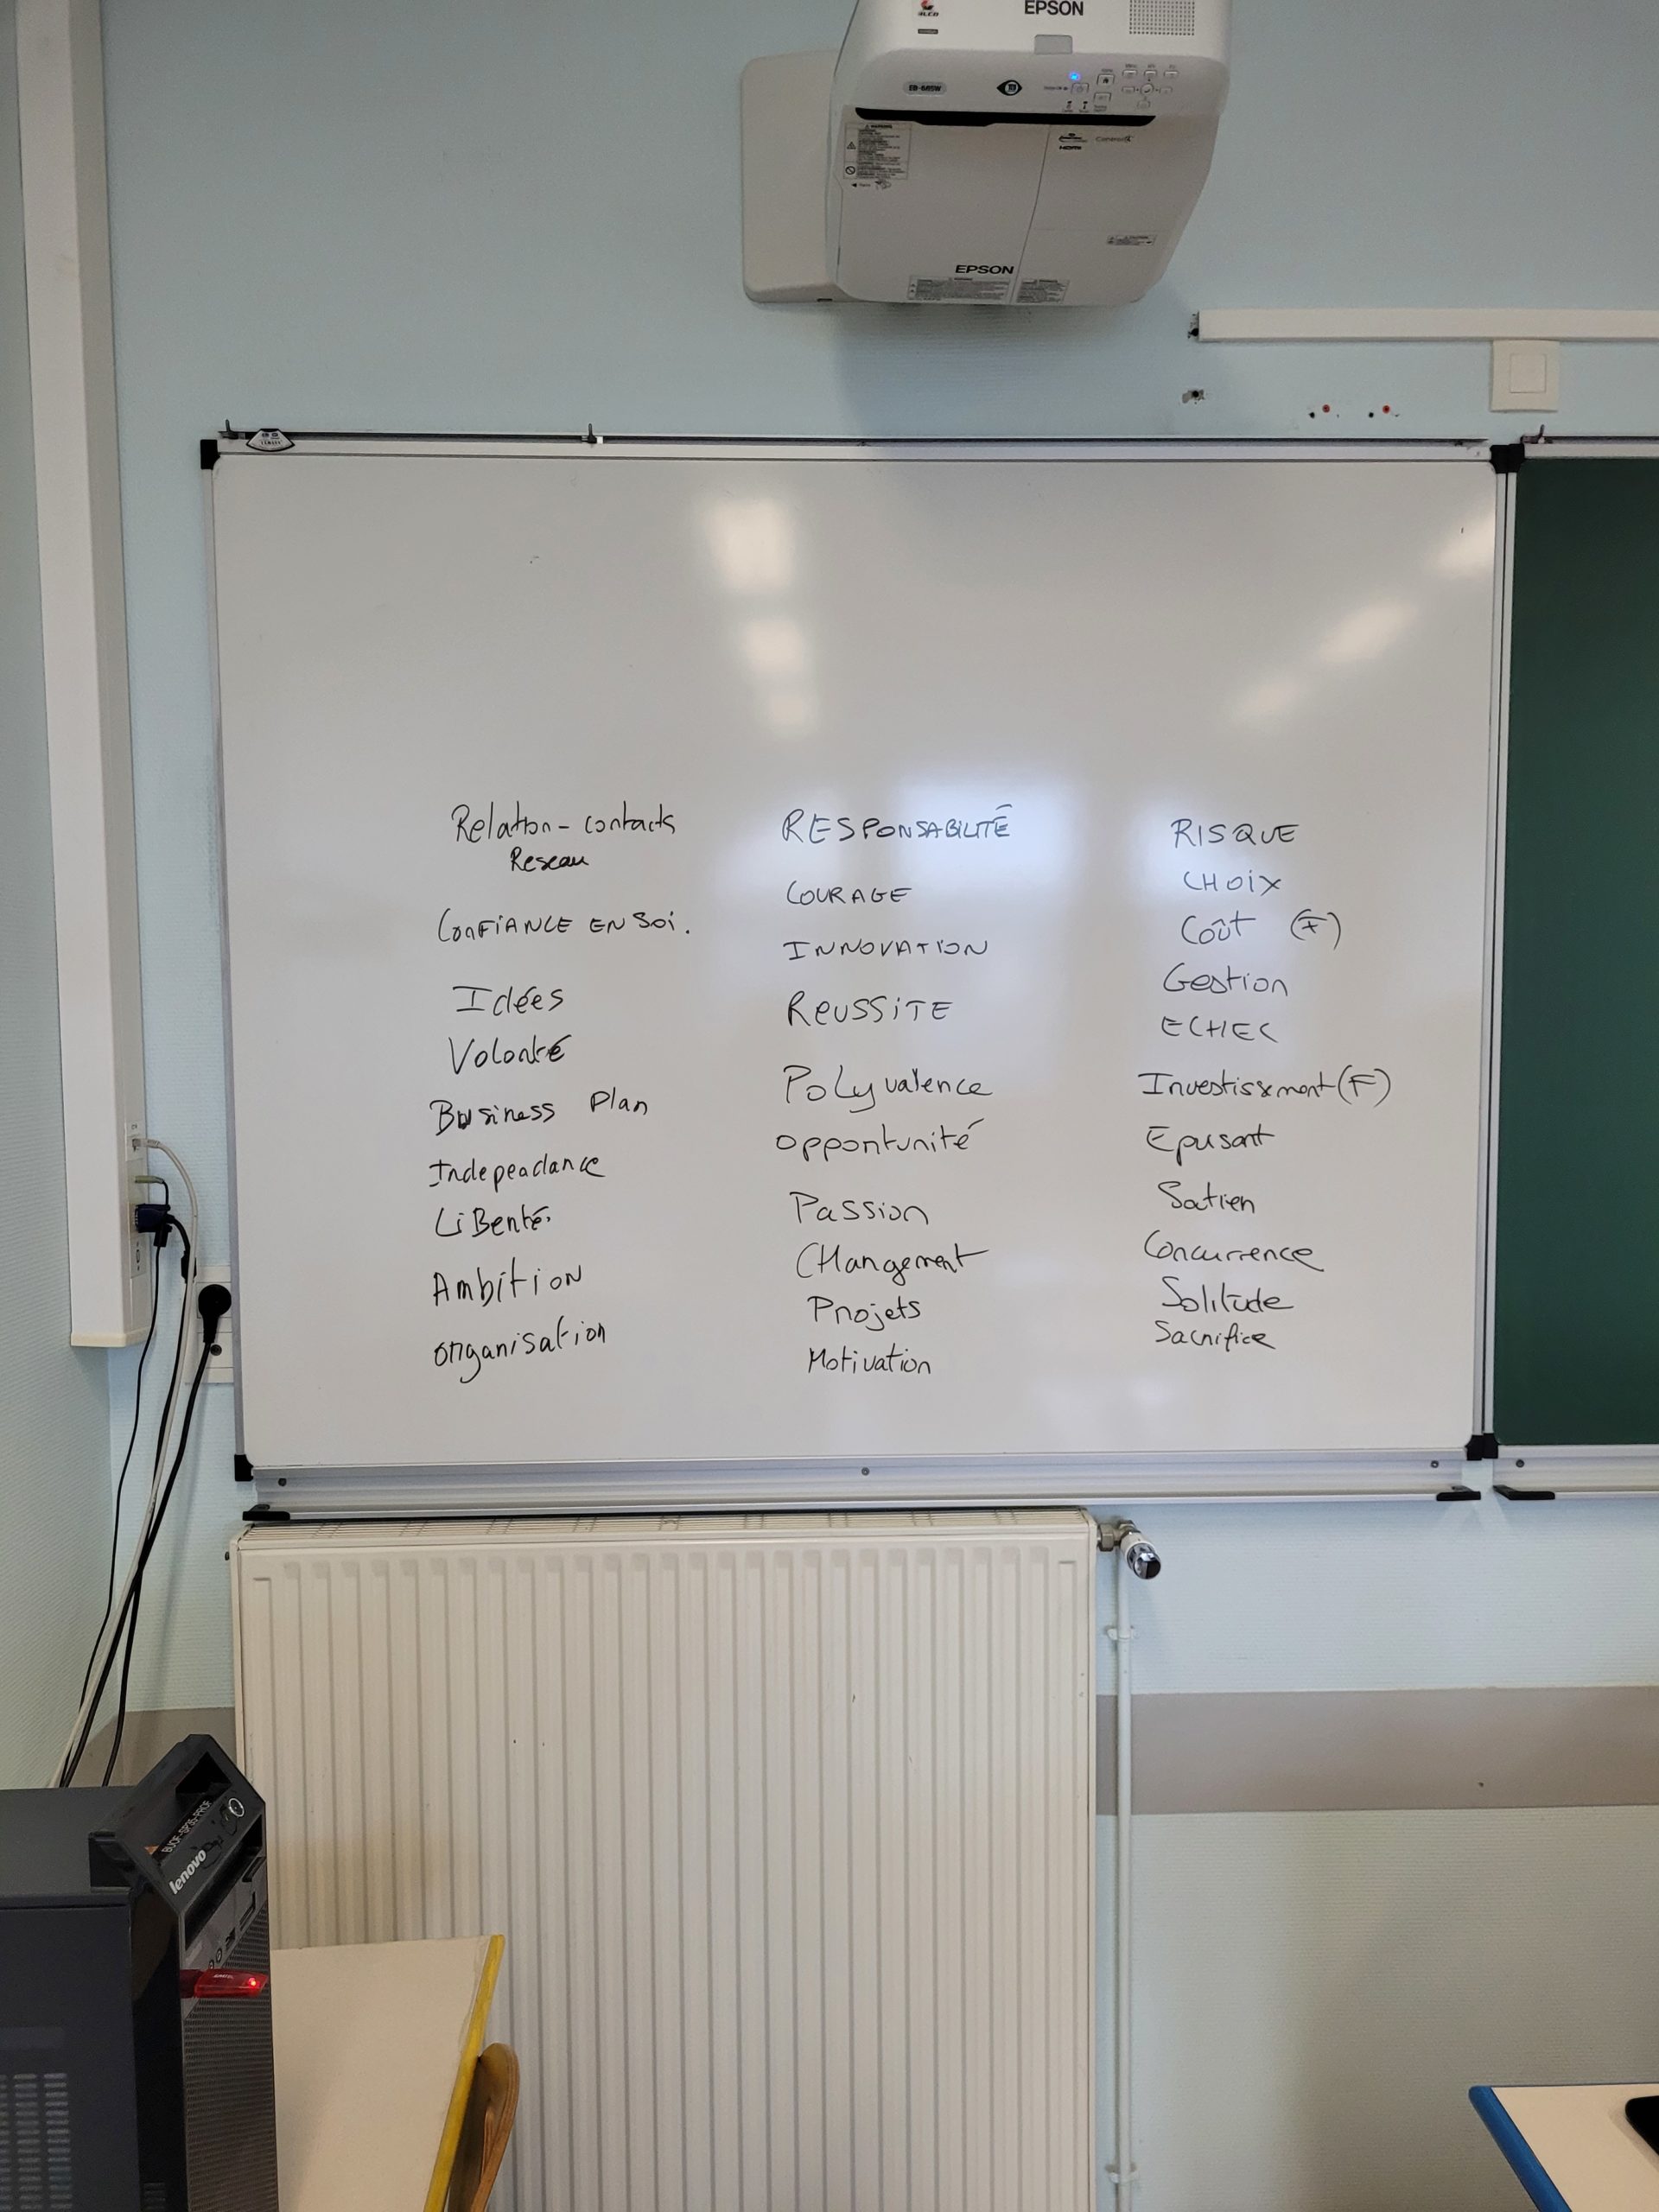 EPSON
EB-685W
HDMI
EPSON
Relation - contacts
Reseau
CONFIANCE EN SOI.
Idées
Volonté
Business Plan
Independance
LiBerté.
Ambition
organisation
RESPONSABILITÉ
COURAGE
INNOVATION
REUSSITE
Polyvalence
opportunité
Passion
CHangement
Projets
Motivation
RISQUE
CHOIX
Coût (F)
Gestion
ECHEC
Investissement (F)
Epuisant
Soutien
Concurrence
Solitude
Sacrifice
lenovo